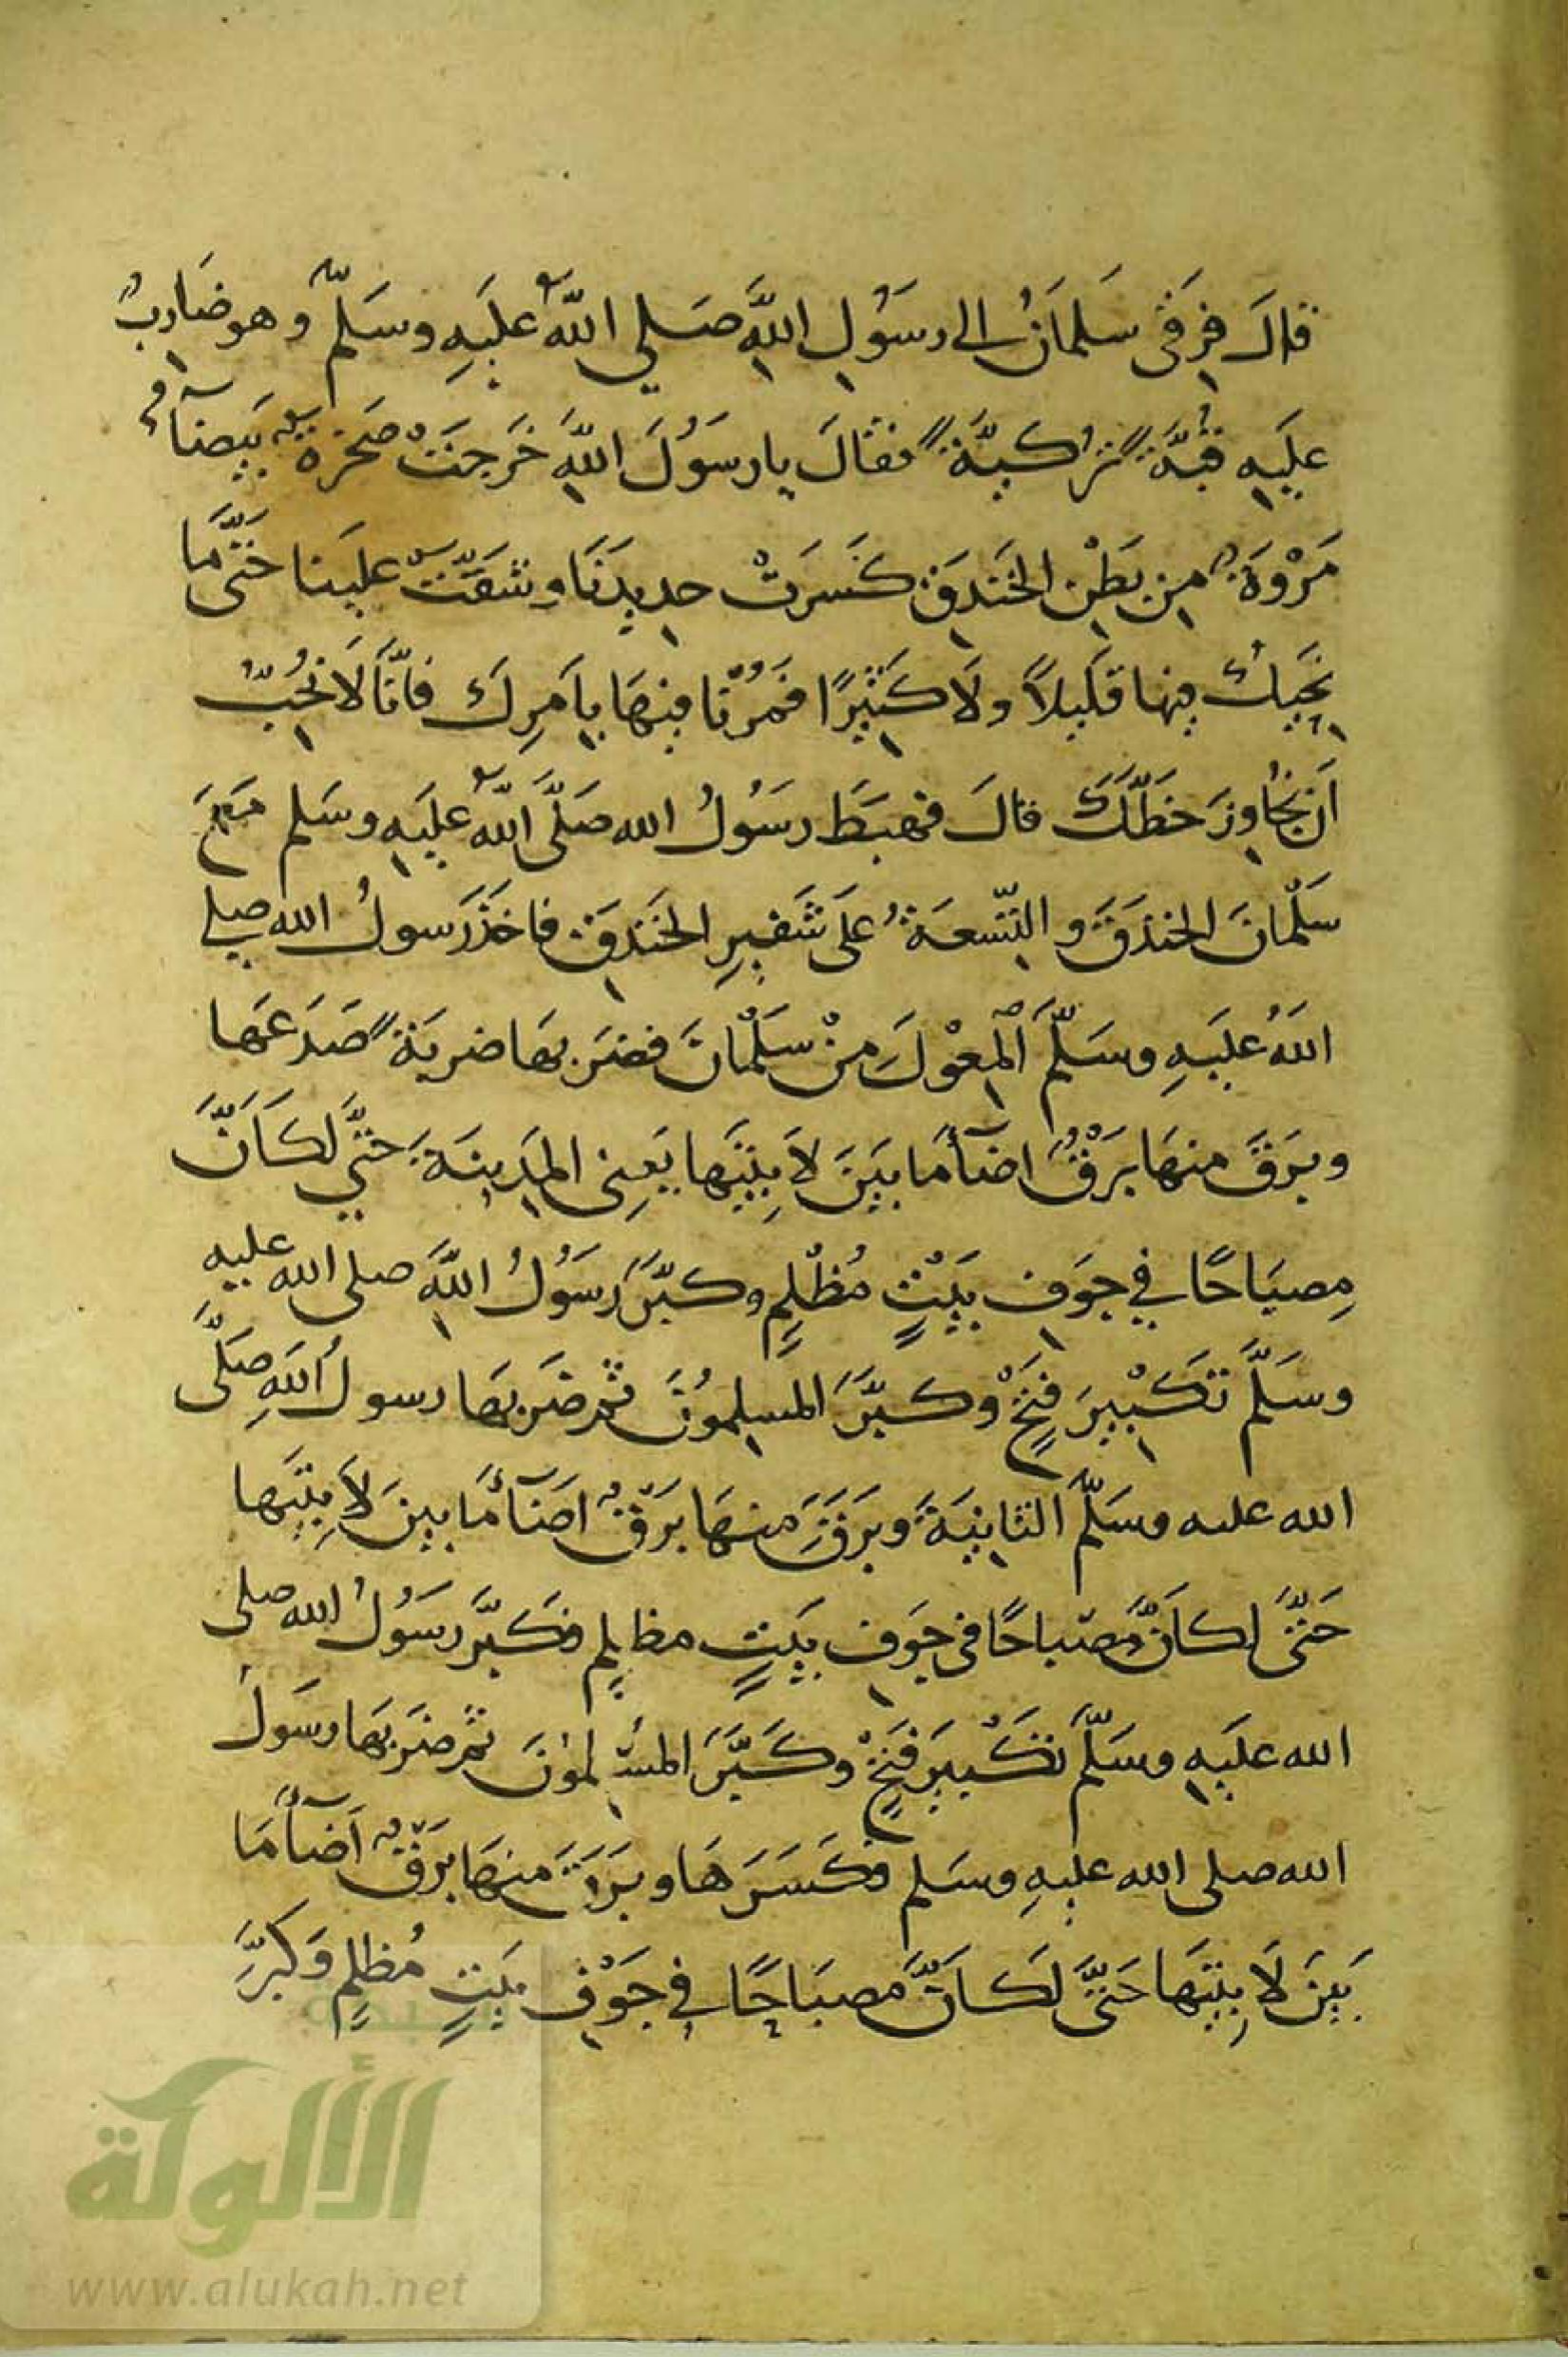 قالَ فرِقَى سَلمانُ الى رسَوُلِ اللهَِّ صَلي اللهُّ علَيَهِ وسَلمّ وهو ضَاربٌ
علَيَهِ قبُّةً تُركيّةً فقالَ يا رسَوُلَ اللهَِّ خَرجَتْ صَخرةٌ بَيضآءُ
مَرْوَةٌ مِن بَطْنِ الخَندقِ كَسَرَتْ حدِيدَنَا وشَقّتْ علَينا حَتَّى مَا
يَحِيكُ فيها قَليلاً ولَا كَثيِرًا فمُرْنا فيِهَا بِاَمرِكَ فانّا لَا نحُبّ
اَن نجُاوِزَ خطّكَ قالَ فهبَطَ رسَوُلُ الله صَلَّى اللهُّ علَيهِ وسَلم مَعَ
سَلْمانَ الخندَقَ والتّسِعَةُ علَى شَفيِرِ الخَندَقِ فاخَذَ رَسولُ الله صلي
اللهُ علَيَهِ وسَلّمَ المعِْوَلَ مِنْ سَلْمانَ فضرَبهَا ضربَةً صَدَعَها
وبرَقَ منهَا برَْقٌ اضَآءَ مَا بيَنَ لَابِتَيَها يَعنِى المدَينِةَ حَتّي لكَاَنَّ
مِصبَاحًا في جوَفِ بَيْتٍ مُظْلِمٍ وكبّرََ رسَوُلُ اللهَِّ صلى الله عليه
وسَلّمَ تَكْبيِرَ فَتْحٍ وكبّرََ المسلِموُنَ ثمّ ضَربهَا رسولُ اللهَِ صَلَّى
الله عليه وسَلّمَ الثانِيَةَ وبرَقَ منهَا برَْقٌ اضَآءَ مَا بينَ لَابِتَيَها
حَتّىَ لكاَنَّ مصباحًا فى جوَفِ بَيتٍ مظلِمٍ فكَبّرَ رسَوُلُ الله صلى
الله علَيَهِ وسَلّمَ تَكْبيرَ فَتْحٍ وكَبَّرَ المسْلِموُنَ ثمّ ضَربَهَا رسَولُ
الله صلى الله عليهِ وسَلم فكَسَرَهَا وبرَقَ منهَا برَْقٌ اَضآءَ مَا
بَينَ لَابِتَيَها حَتىَّ لَكاَنَّ مصبَاحًا فِي جَوْفِ بَيتٍ مُظلِمٍ وَكَبرََّ
الألوكة
www.alukah.net